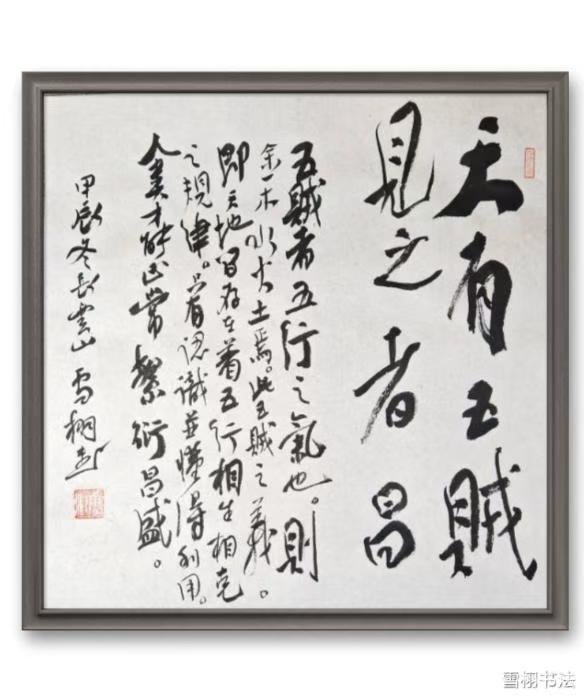 天有五賊
見之者昌
五賊者五行之氣也。則
金木水火土焉。此五賊之義。
即天地皆存在着五行相生相克
之規律。只有認識並懂得利用。
人类才能正常繁衍昌盛。
甲辰冬於雲山雪栩书
雪栩书法